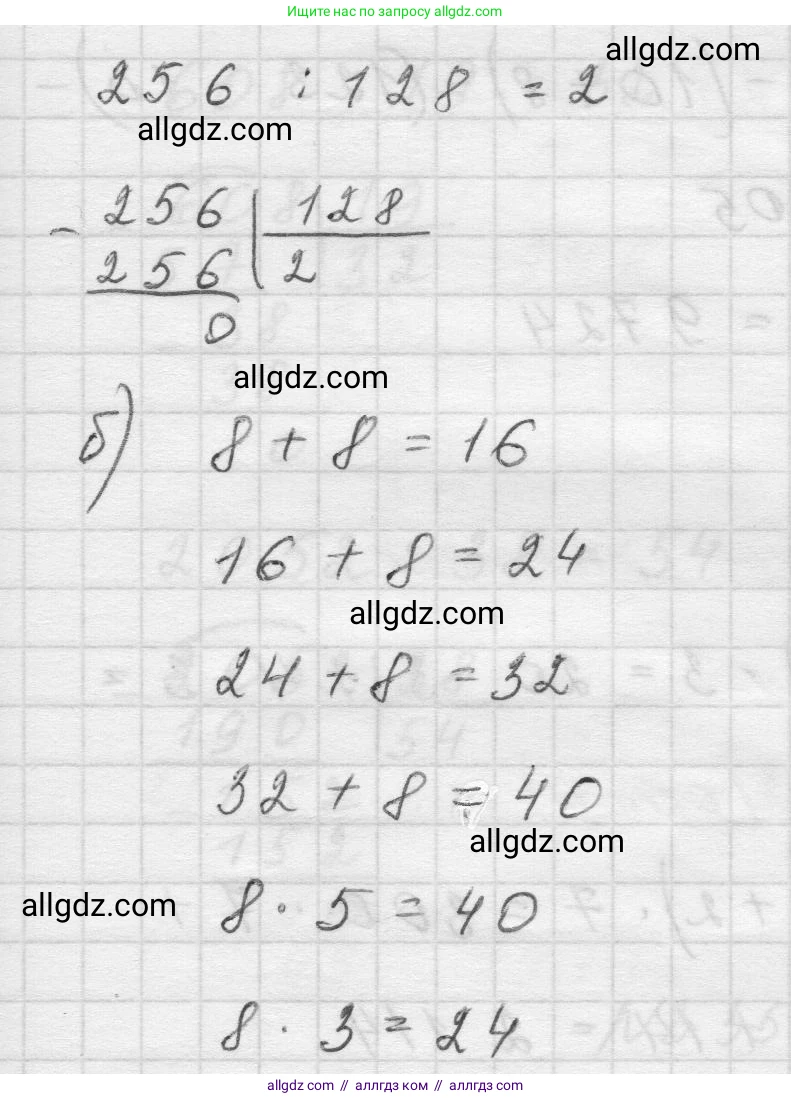 Ищите нас по запросу allgdz.com
allgdz.com
256 : 128 = 2
allgdz.com
- 256 | 128
256 | 2
0
allgdz.com
б) 8 + 8 = 16
16 + 8 = 24
allgdz.com
24 + 8 = 32
32 + 8 = 40
allgdz.com
allgdz.com
8 · 5 = 40
8 · 3 = 24
allgdz com // аллгдз ком // allgdz.com